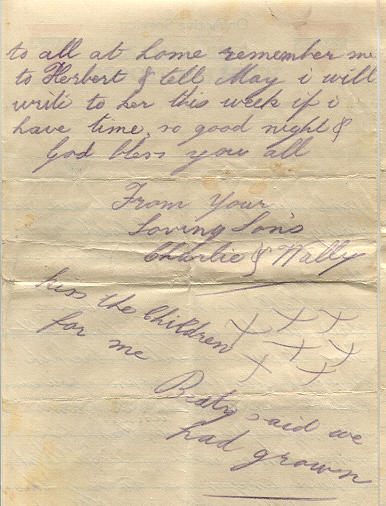 to all at home remember me
to Herbert & tell May i will
write to her this week if i
have time, so good night &
God bless you all
From Your
Loving Sons
Charlie & Wally
kiss the Children
for me
X X X
X X X
X X
said we
had grown